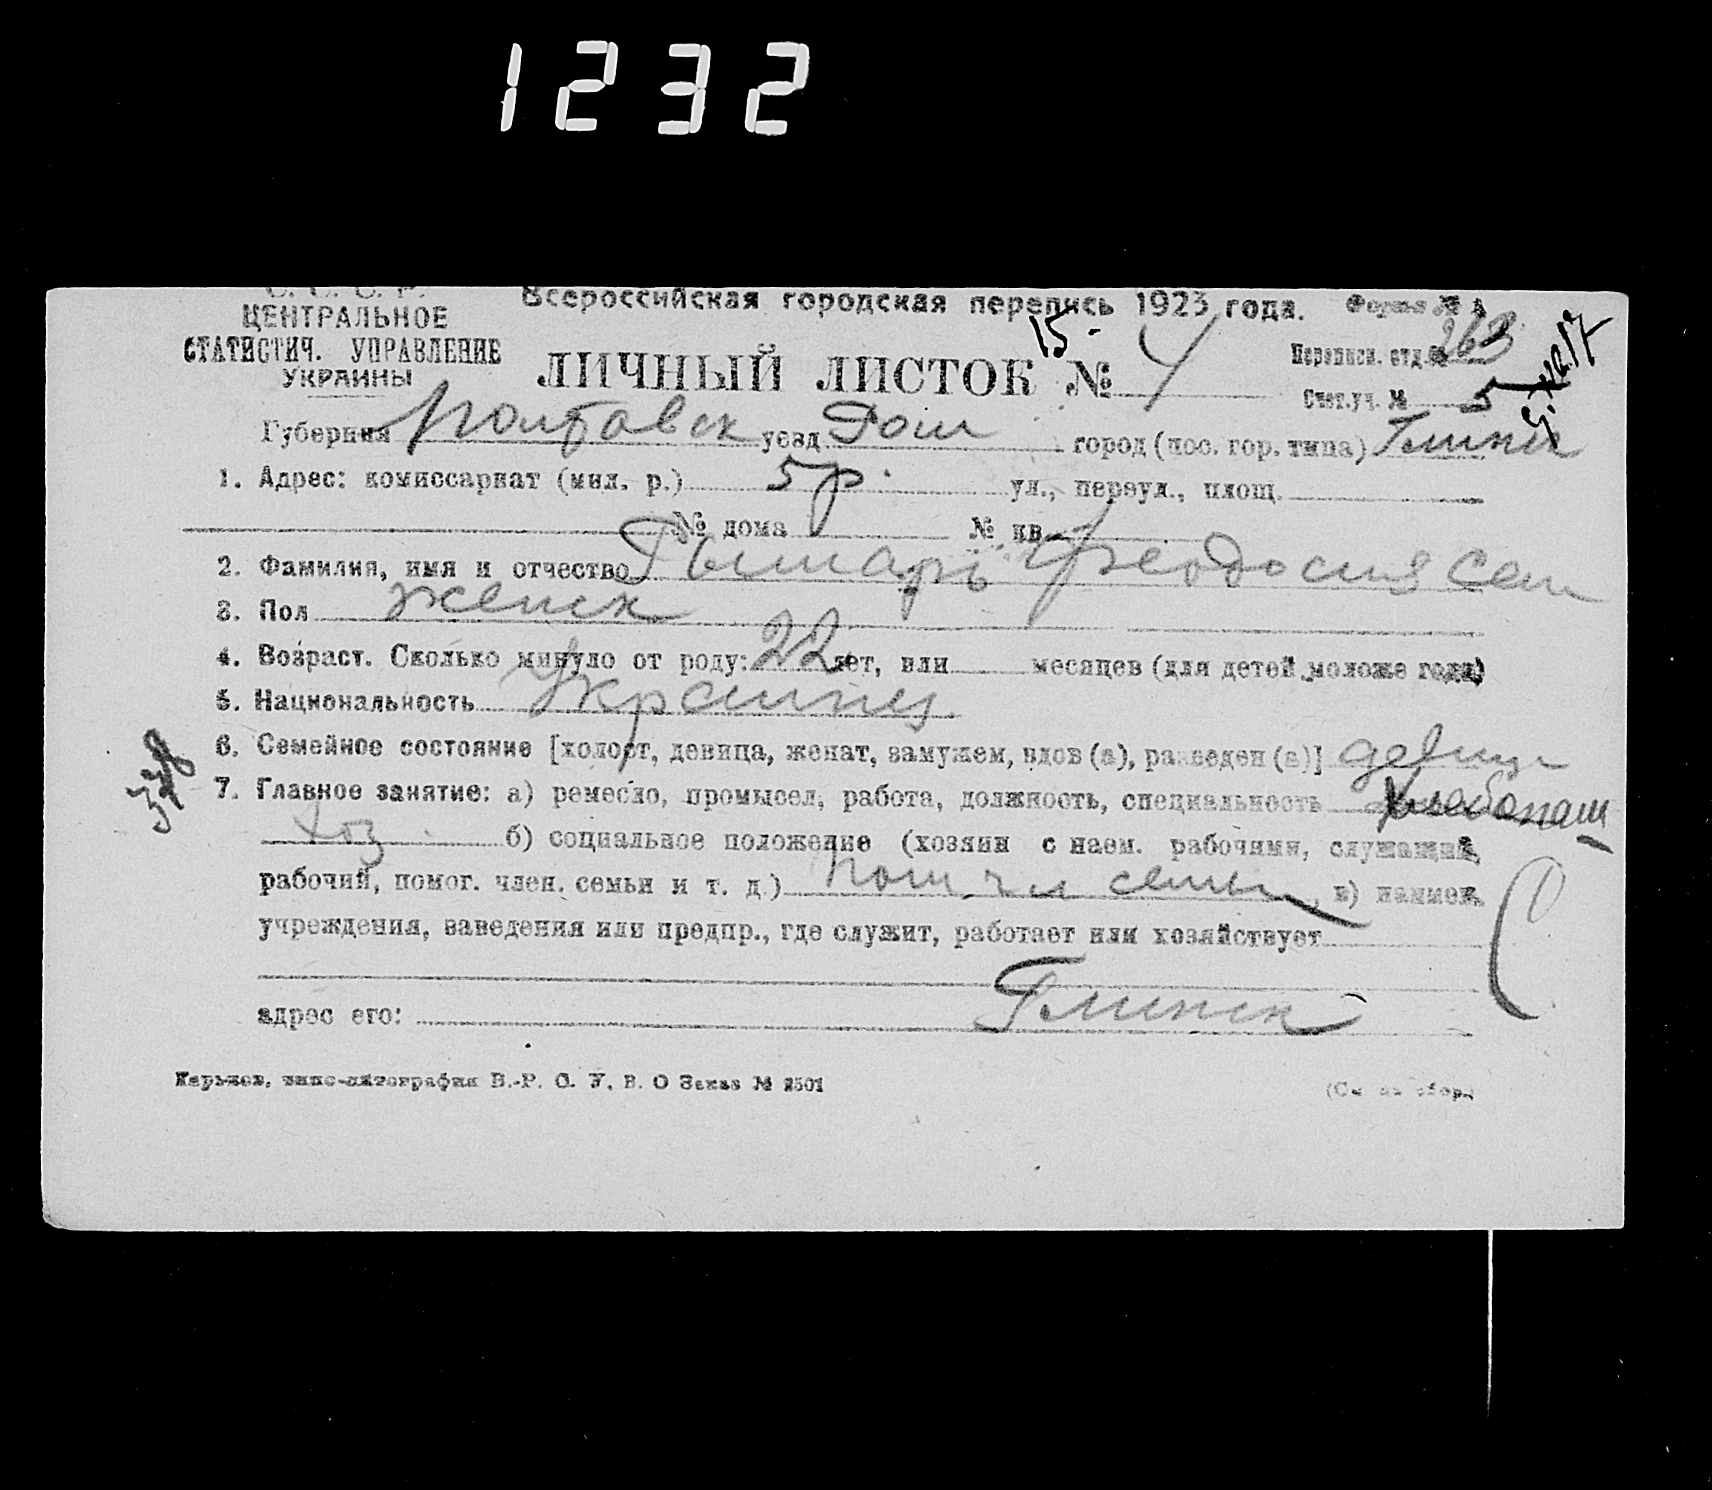 1232
С. С. С. Р.
ЦЕНТРАЛЬНОЕ
СТАТИСТИЧ. УПРАВЛЕНИЕ
УКРАИНЫ
Всероссийская городская перепись 1923 года.
Форма № А
15.
ЛИЧНЫЙ ЛИСТОК № 4
Переписн. отд. № 263
Счет. уч. № 5
Губерния Полтавск уезд Ром город (пос. гор. типа) Глинск
1. Адрес: комиссариат (мил. р.) 5 р. ул., переул., площ.
№ дома № кв.
2. Фамилия, имя и отчество Феодосия Сем
3. Пол женск
4. Возраст. Сколько минуло от роду: 22 лет, или месяцев (для детей моложе года)
5. Национальность Украинец
6. Семейное состояние [холост, девица, женат, замужем, вдов (а), разведен (а)] девица
378
7. Главное занятие: а) ремесло, промысел, работа, должность, специальность Хлебопаш
хоз б) социальное положение (хозяин с наем. рабочими, служащий,
рабочий, помог. член. семьи и т. д.) пом. чл семьи, в) наимен.
учреждения, заведения или предпр., где служит, работает или хозяйствует
адрес его: Глинск
Харьков, типо-литография В.-Р. С. У. В. О Заказ № 2501
(См на обор.)